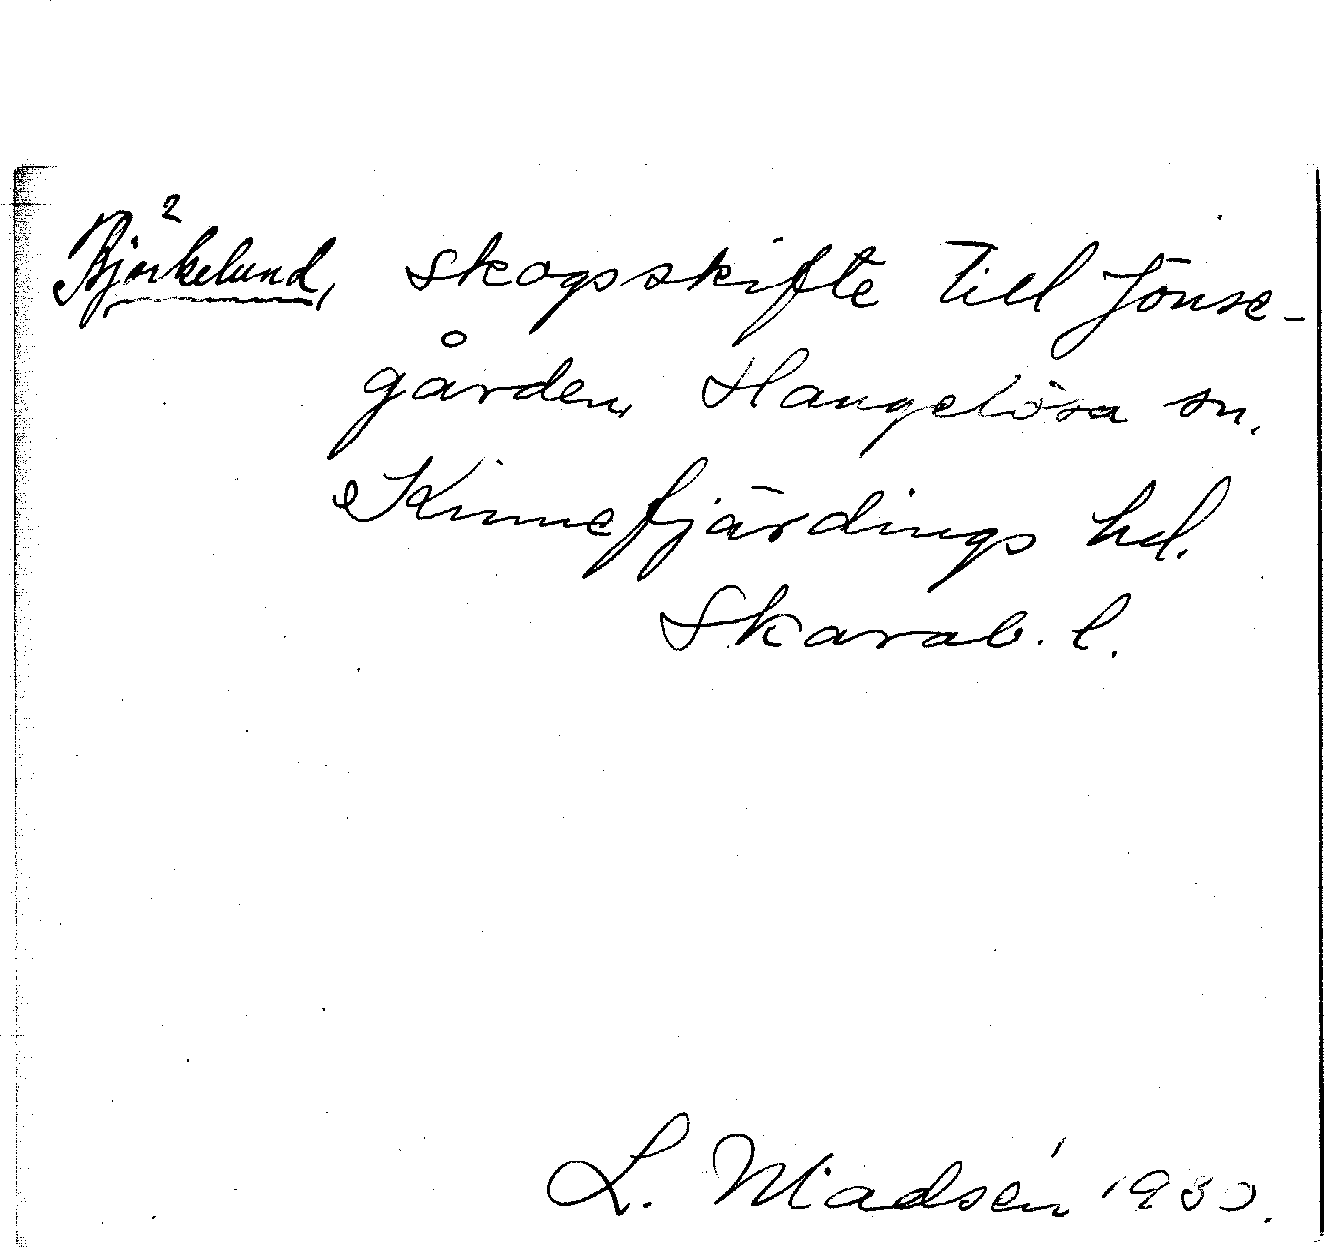 Bjørkelund, skogsskifte till Jönse-
gården, Hangelösa sn.
Kinnefjärdings hd.
Skarab. l.
L. Madsén 1930.